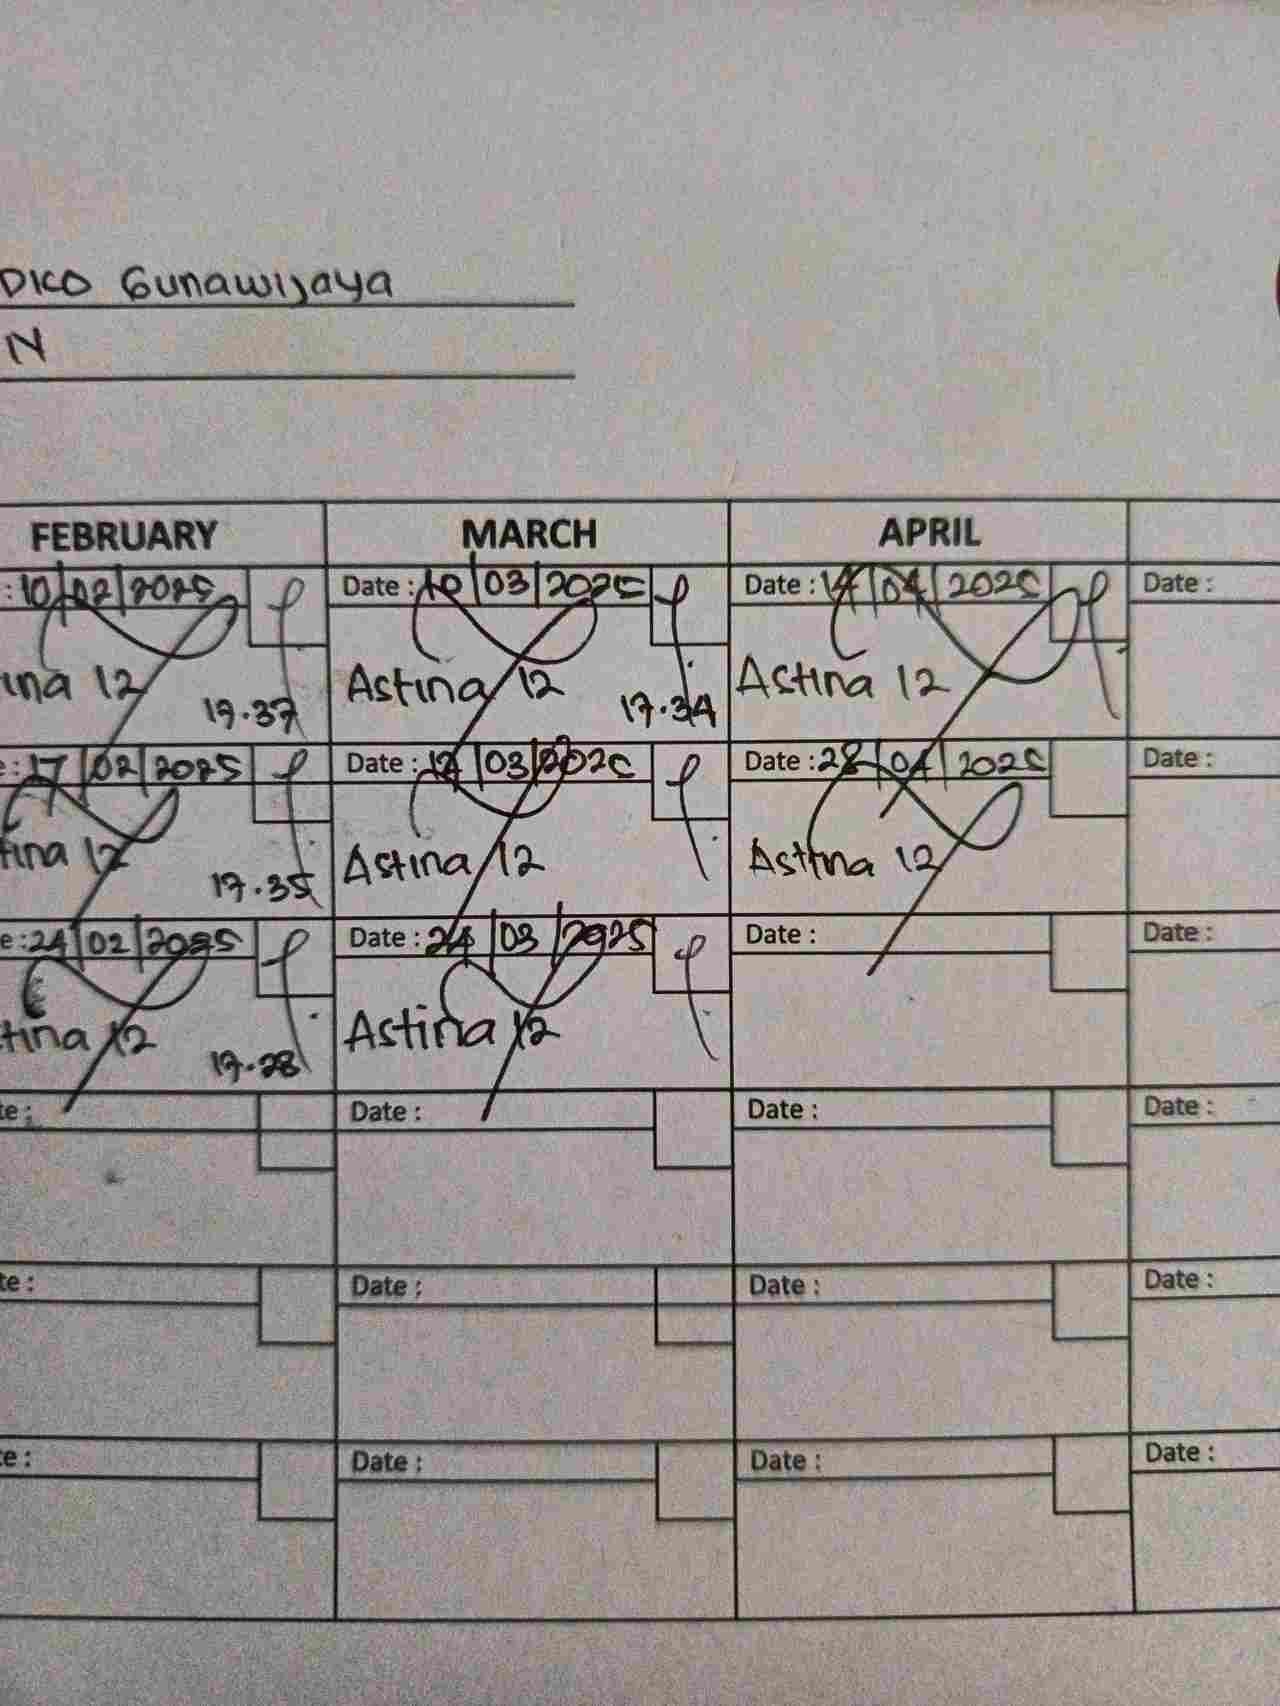 DICO Gunawijaya
N
FEBRUARY MARCH APRIL
: 10/02/2025 Date : 10/03/2025 Date : 14/04/2025 Date :
ina 12 17.37 Astina 12 17.34 Astina 12
e : 17/02/2025 Date : 17/03/2025 Date : 28/04/2025 Date :
tina 12 17.35 Astina 12 Astina 12
e : 24/02/2025 Date : 24/03/2025 Date : Date :
tina 12 17.28 Astina 12
te : Date : Date : Date :
te : Date : Date : Date :
te : Date : Date : Date :